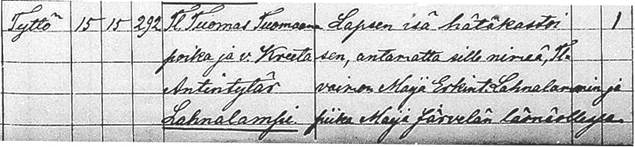 Tyttö 15 15 292 Tl. Tuomas Tuomaan Lapsen isä hätäkastoi 1
poika ja v. Kreeta sen, antamatta sille nimeä, Tl.
Antintytär vaimon Maija Erkint. Lahnalammin ja
Lahnalampi. piika Maija Järvelän läsnäollessa.